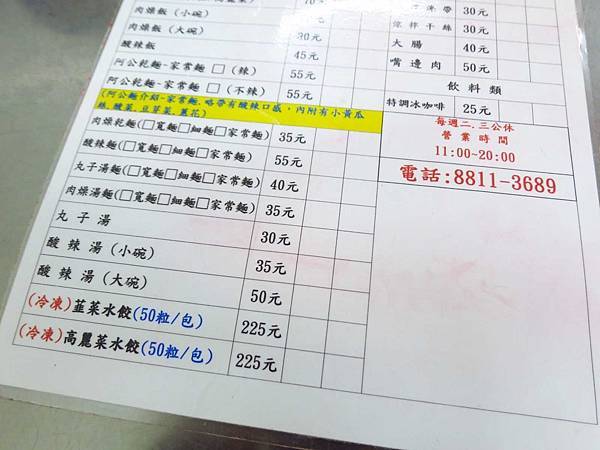 70元
肉燥飯(小碗) 20元
肉燥飯(大碗) 30元
酸辣飯 45元
阿公乾麵-家常麵□(辣) 55元
阿公乾麵-家常麵□(不辣) 55元
(阿公麵介紹-家常麵,略帶有酸辣口感,內附有小黃瓜
絲,酸菜,豆芽菜,蔥花)
肉燥乾麵(□寬麵□細麵□家常麵) 35元
酸辣麵(□寬麵□細麵□家常麵) 55元
丸子湯麵(□寬麵□細麵□家常麵) 40元
肉燥湯麵(□寬麵□細麵□家常麵) 35元
丸子湯 30元
酸辣湯(小碗) 35元
酸辣湯(大碗) 50元
(冷凍)韮菜水餃(50粒/包) 225元
(冷凍)高麗菜水餃(50粒/包) 225元
海帶 30元
涼拌干絲 30元
大腸 40元
嘴邊肉 50元
飲料類
特調冰咖啡 25元
每週二,三公休
營業時間
11:00~20:00
電話:8811-3689